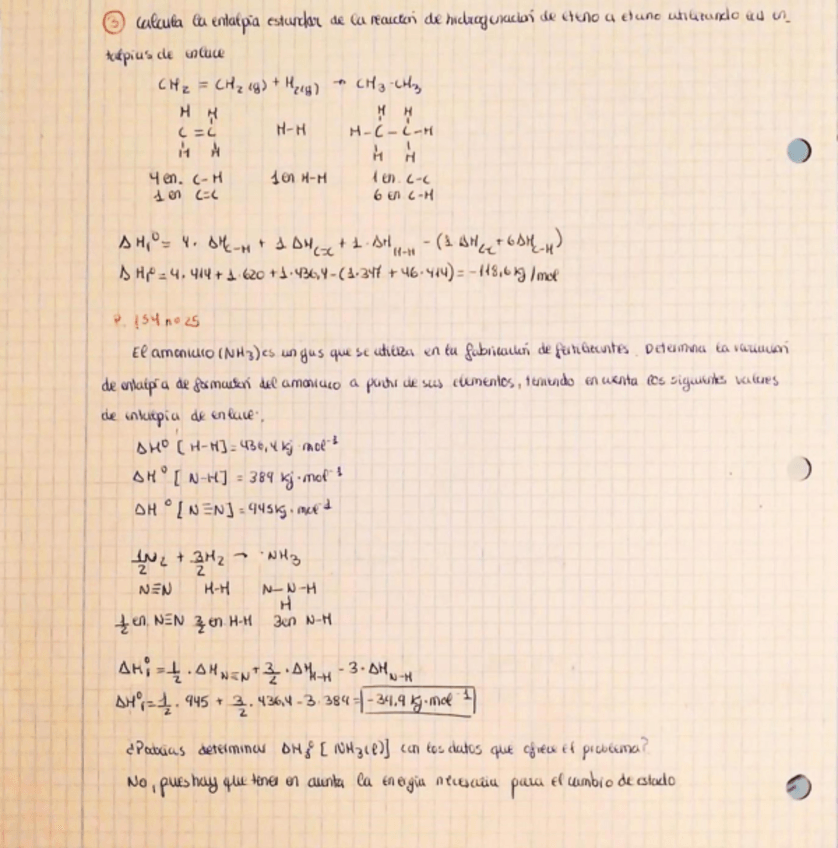 ③ Calcula la entalpía estandar de la reacción de hidrogenación de eteno a etano utilizando las en_
talpías de enlace
CH₂ = CH₂ (g) + H₂(g) → CH₃-CH₃
H H H H
C = C H-H H-C-C-H
H H H H
4 en. C-H 1 en H-H 1 en. C-C
1 en C=C 6 en C-H
ΔH₁⁰ = 4. ΔH_C-H + 1 ΔH_C=C + 1. ΔH_H-H - (1 ΔH_CC + 6ΔH_C-H)
ΔH₁⁰ = 4. 414 + 1. 620 + 1. 436,4 - (1.347 + 46.414) = -118,6 kj/mol
P. 154 nº 25
El amoniaco (NH₃) es un gas que se utiliza en la fabricación de fertilizantes. Determina la variación
de entalpía de formación del amoniaco a partir de sus elementos, teniendo en cuenta los siguientes valores
de entalpía de enlace:
ΔH⁰ [H-H] = 436,4 kj mol⁻¹
ΔH⁰ [N-H] = 389 kj·mol⁻¹
ΔH⁰ [N≡N] = 945 kj·mol⁻¹
1/2 N₂ + 3/2 H₂ → NH₃
N≡N H-H N-N-H
H
1/2 en N≡N 3/2 en H-H 3 en N-H
ΔH₁⁰ = 1/2 · ΔH_N≡N + 3/2 · ΔH_H-H - 3·ΔH_N-H
ΔH₁⁰ = 1/2 . 945 + 3/2 . 436,4 - 3. 389 = -39,9 kj·mol⁻¹
¿Podrías determinar ΔHf⁰ [NH₃(l)] con los datos que ofrece el problema?
No, pues hay que tener en cuenta la energía necesaria para el cambio de estado